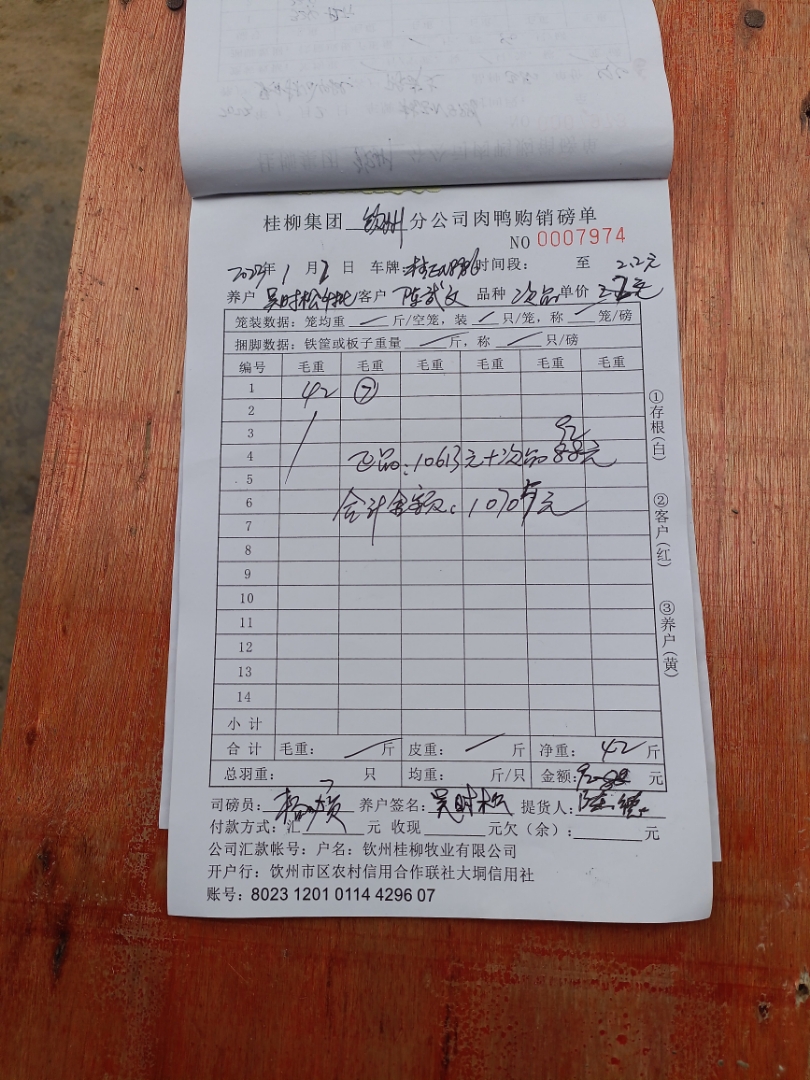 桂柳集团 钦州 分公司肉鸭购销磅单
NO 0007974
年 1 月 2 日 车牌: 时间段: 至 2.2元
养户 吴时松 客户 陈武文 品种 次品 单价
笼装数据: 笼均重 斤/空笼, 装 只/笼, 称 笼/磅
捆脚数据: 铁筐或板子重量 斤, 称 只/磅
编号 毛重 毛重 毛重 毛重 毛重 毛重
1 42 ⑦
2
3 92
4 正品: 10613元+次品 元
5
6 合计金额: 10705元
7
8
9
10
11
12
13
14
小计
合计 毛重: 斤 皮重: 斤 净重: 42 斤
总羽重: 7 只 均重: 斤/只 金额: 92 元
①存根(白)
②客户(红)
③养户(黄)
司磅员: 养户签名: 吴时松 提货人:
付款方式: 汇 元 收现 元欠(余): 元
公司汇款帐号: 户名: 钦州桂柳牧业有限公司
开户行: 钦州市区农村信用合作联社大垌信用社
账号: 8023 1201 0114 4296 07